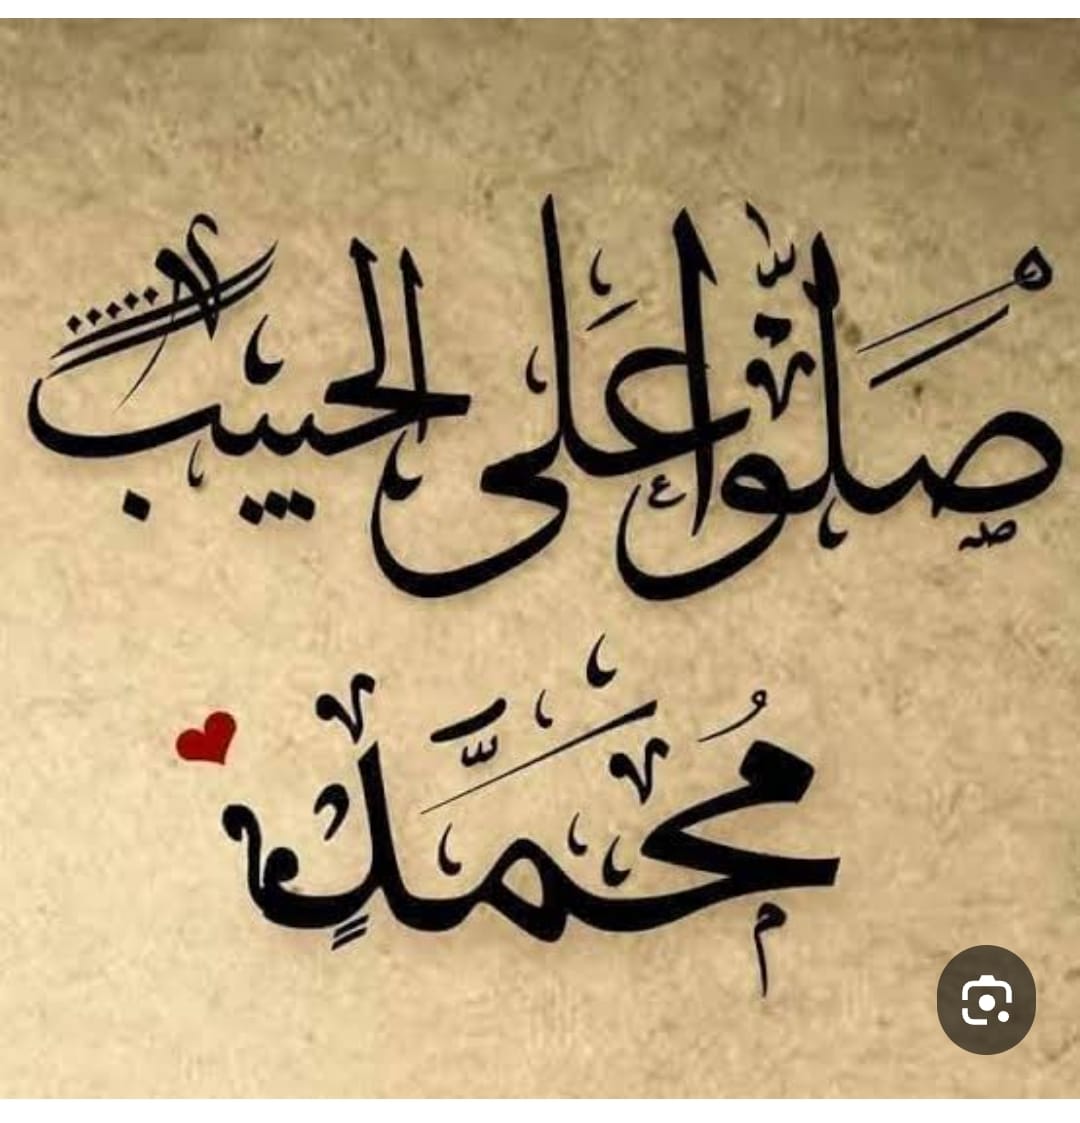 صَلُّوا عَلى الحبيبِ
مُحَمَّدٍ